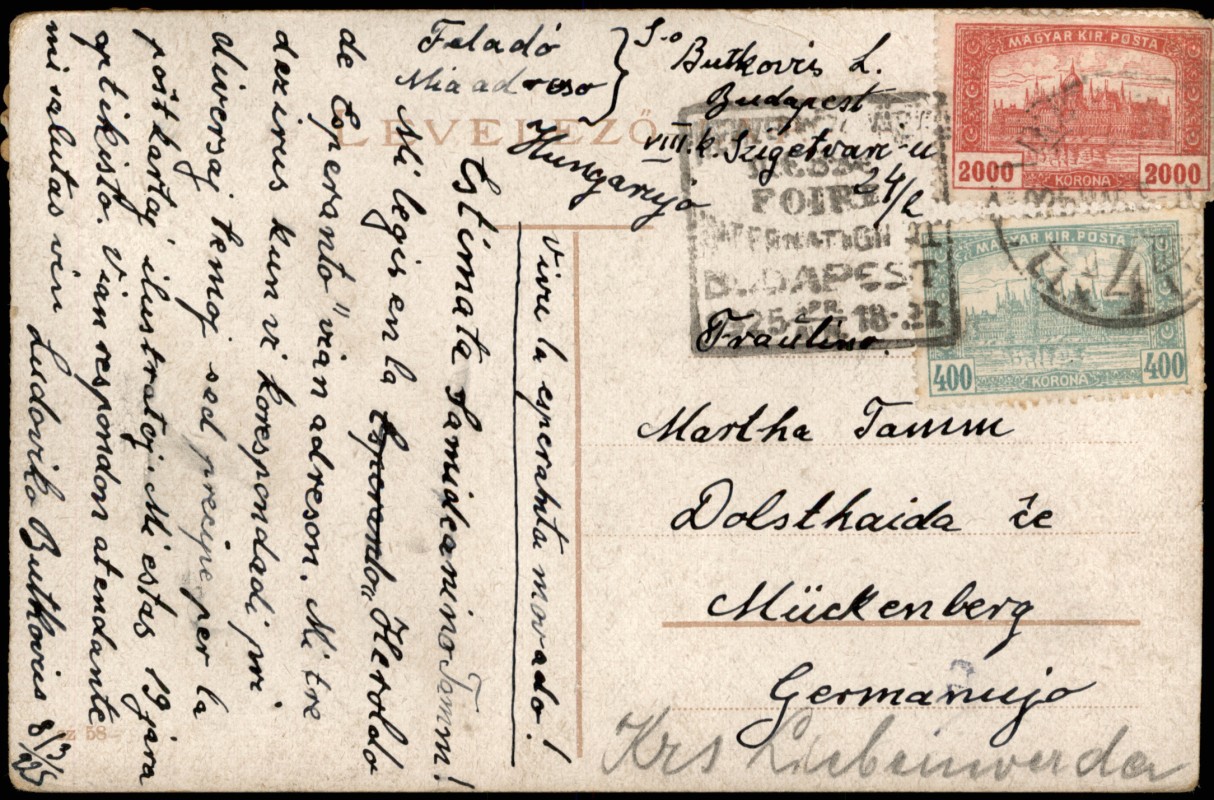 Feladó
Mia adreso
S-o
Butkovis L.
Budapest
VIII.k. Szigetvari-u
24/2
Hungarujo
LEVELEZŐ
MAGYAR KIR. POSTA
2000
2000
KORONA
MAGYAR KIR. POSTA
400
400
KORONA
FOIRE
INTERNATION
BUDAPEST
1925 18-27
4
Fraŭlino.
Martha Tamm
Dolsthaida ĉe
Mückenberg
Germanujo
Krs Liebenwerda
Vivu la eperanta movado!
Estimata Samideanino Tamm!
Mi legis en la Esperanto „Heroldo
de Esperanto" vian adreson. Mi tre
dezirus kun vi korespondadi, pri
diversaj temoj sed precipe per la
poŝtkartaj ilustrataj. Mi estas 19 jara
optikisto. Vian respondon atendante
mi salutas vin
Ludoviko Butkovis 8/3/925
58